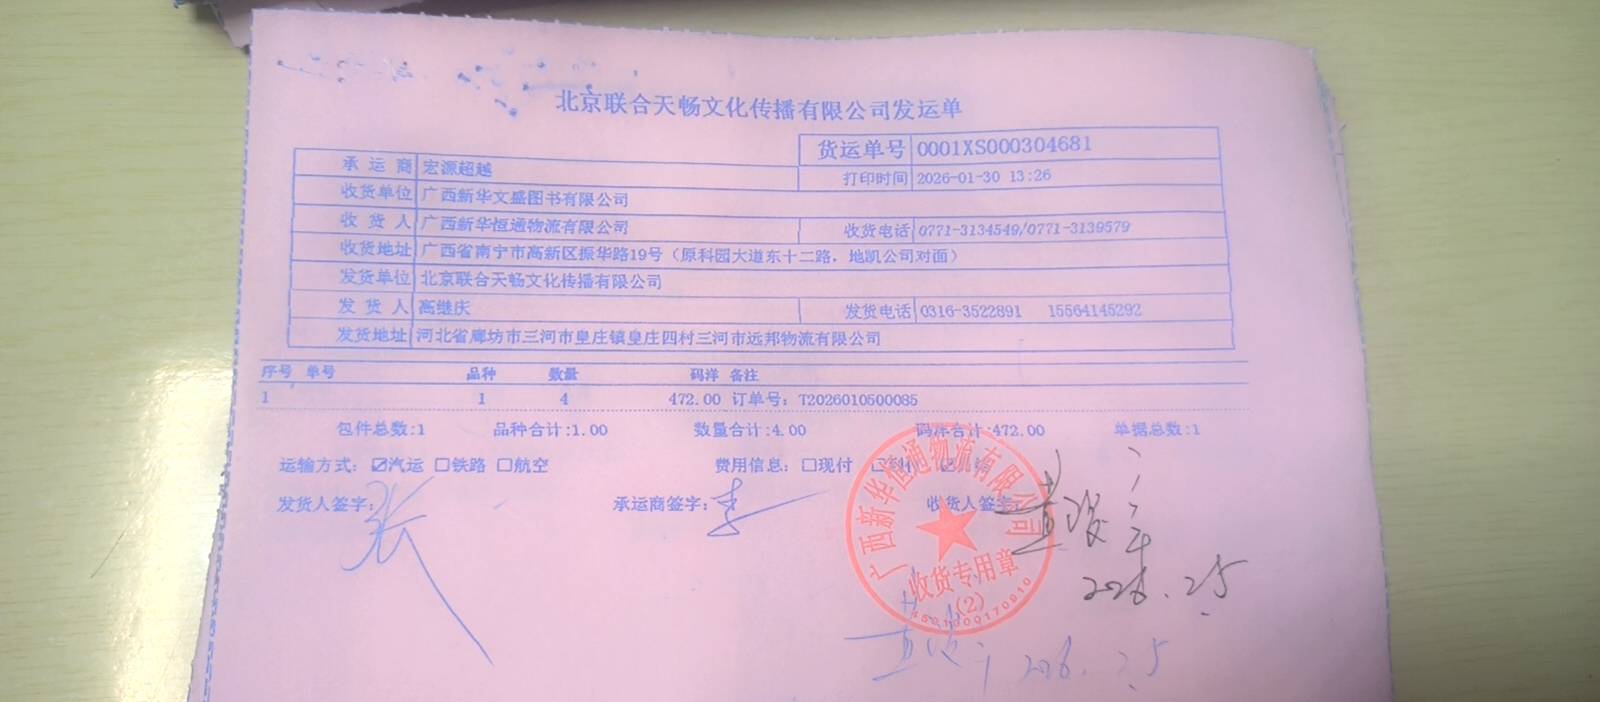 北京联合天畅文化传播有限公司发运单
货运单号 0001XS000304681
承运商 宏源超越 打印时间 2026-01-30 13:26
收货单位 广西新华文盛图书有限公司
收货人 广西新华恒通物流有限公司 收货电话 0771-3134549/0771-3139579
收货地址 广西省南宁市高新区振华路19号（原科园大道东十二路，地凯公司对面）
发货单位 北京联合天畅文化传播有限公司
发货人 高继庆 发货电话 0316-3522891 15564145292
发货地址 河北省廊坊市三河市皇庄镇皇庄四村三河市远邦物流有限公司
序号 单号 品种 数量 码洋 备注
1 1 4 472.00 订单号：T2026010500085
包件总数:1 品种合计:1.00 数量合计:4.00 码洋合计:472.00 单据总数:1
运输方式：☑汽运 □铁路 □航空 费用信息：□现付
发货人签字： 张 承运商签字：李 收货人签字：
广西新华恒通物流有限公司
收货专用章
(2)
4501000170910
2026.2.5
2026.2.5